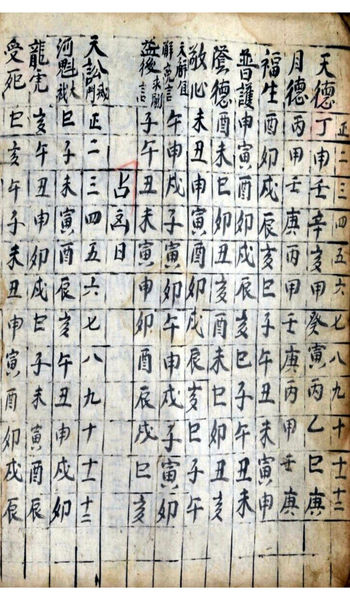 正二三四五六七八九十十一十二
天德丁申壬辛亥甲癸寅丙乙巳庚
月德丙甲壬庚丙甲壬庚丙甲壬庚
福生酉卯戌辰亥巳子午丑未寅申
普護申寅酉卯戌辰亥巳子午丑未
蔭德酉未巳卯丑亥酉未巳卯丑亥
敬心未丑申寅酉卯戌辰亥巳子午
午申戌子寅卯午申戌子寅卯
益後子午丑未寅申卯酉辰戌巳亥
占日
天訟門正二三四五六七八九十十一十二
河魁巳子未寅酉辰亥午丑申戌卯
龍虎亥午丑申卯戌巳子未寅酉辰
受死巳亥午子未丑申寅酉卯戌辰